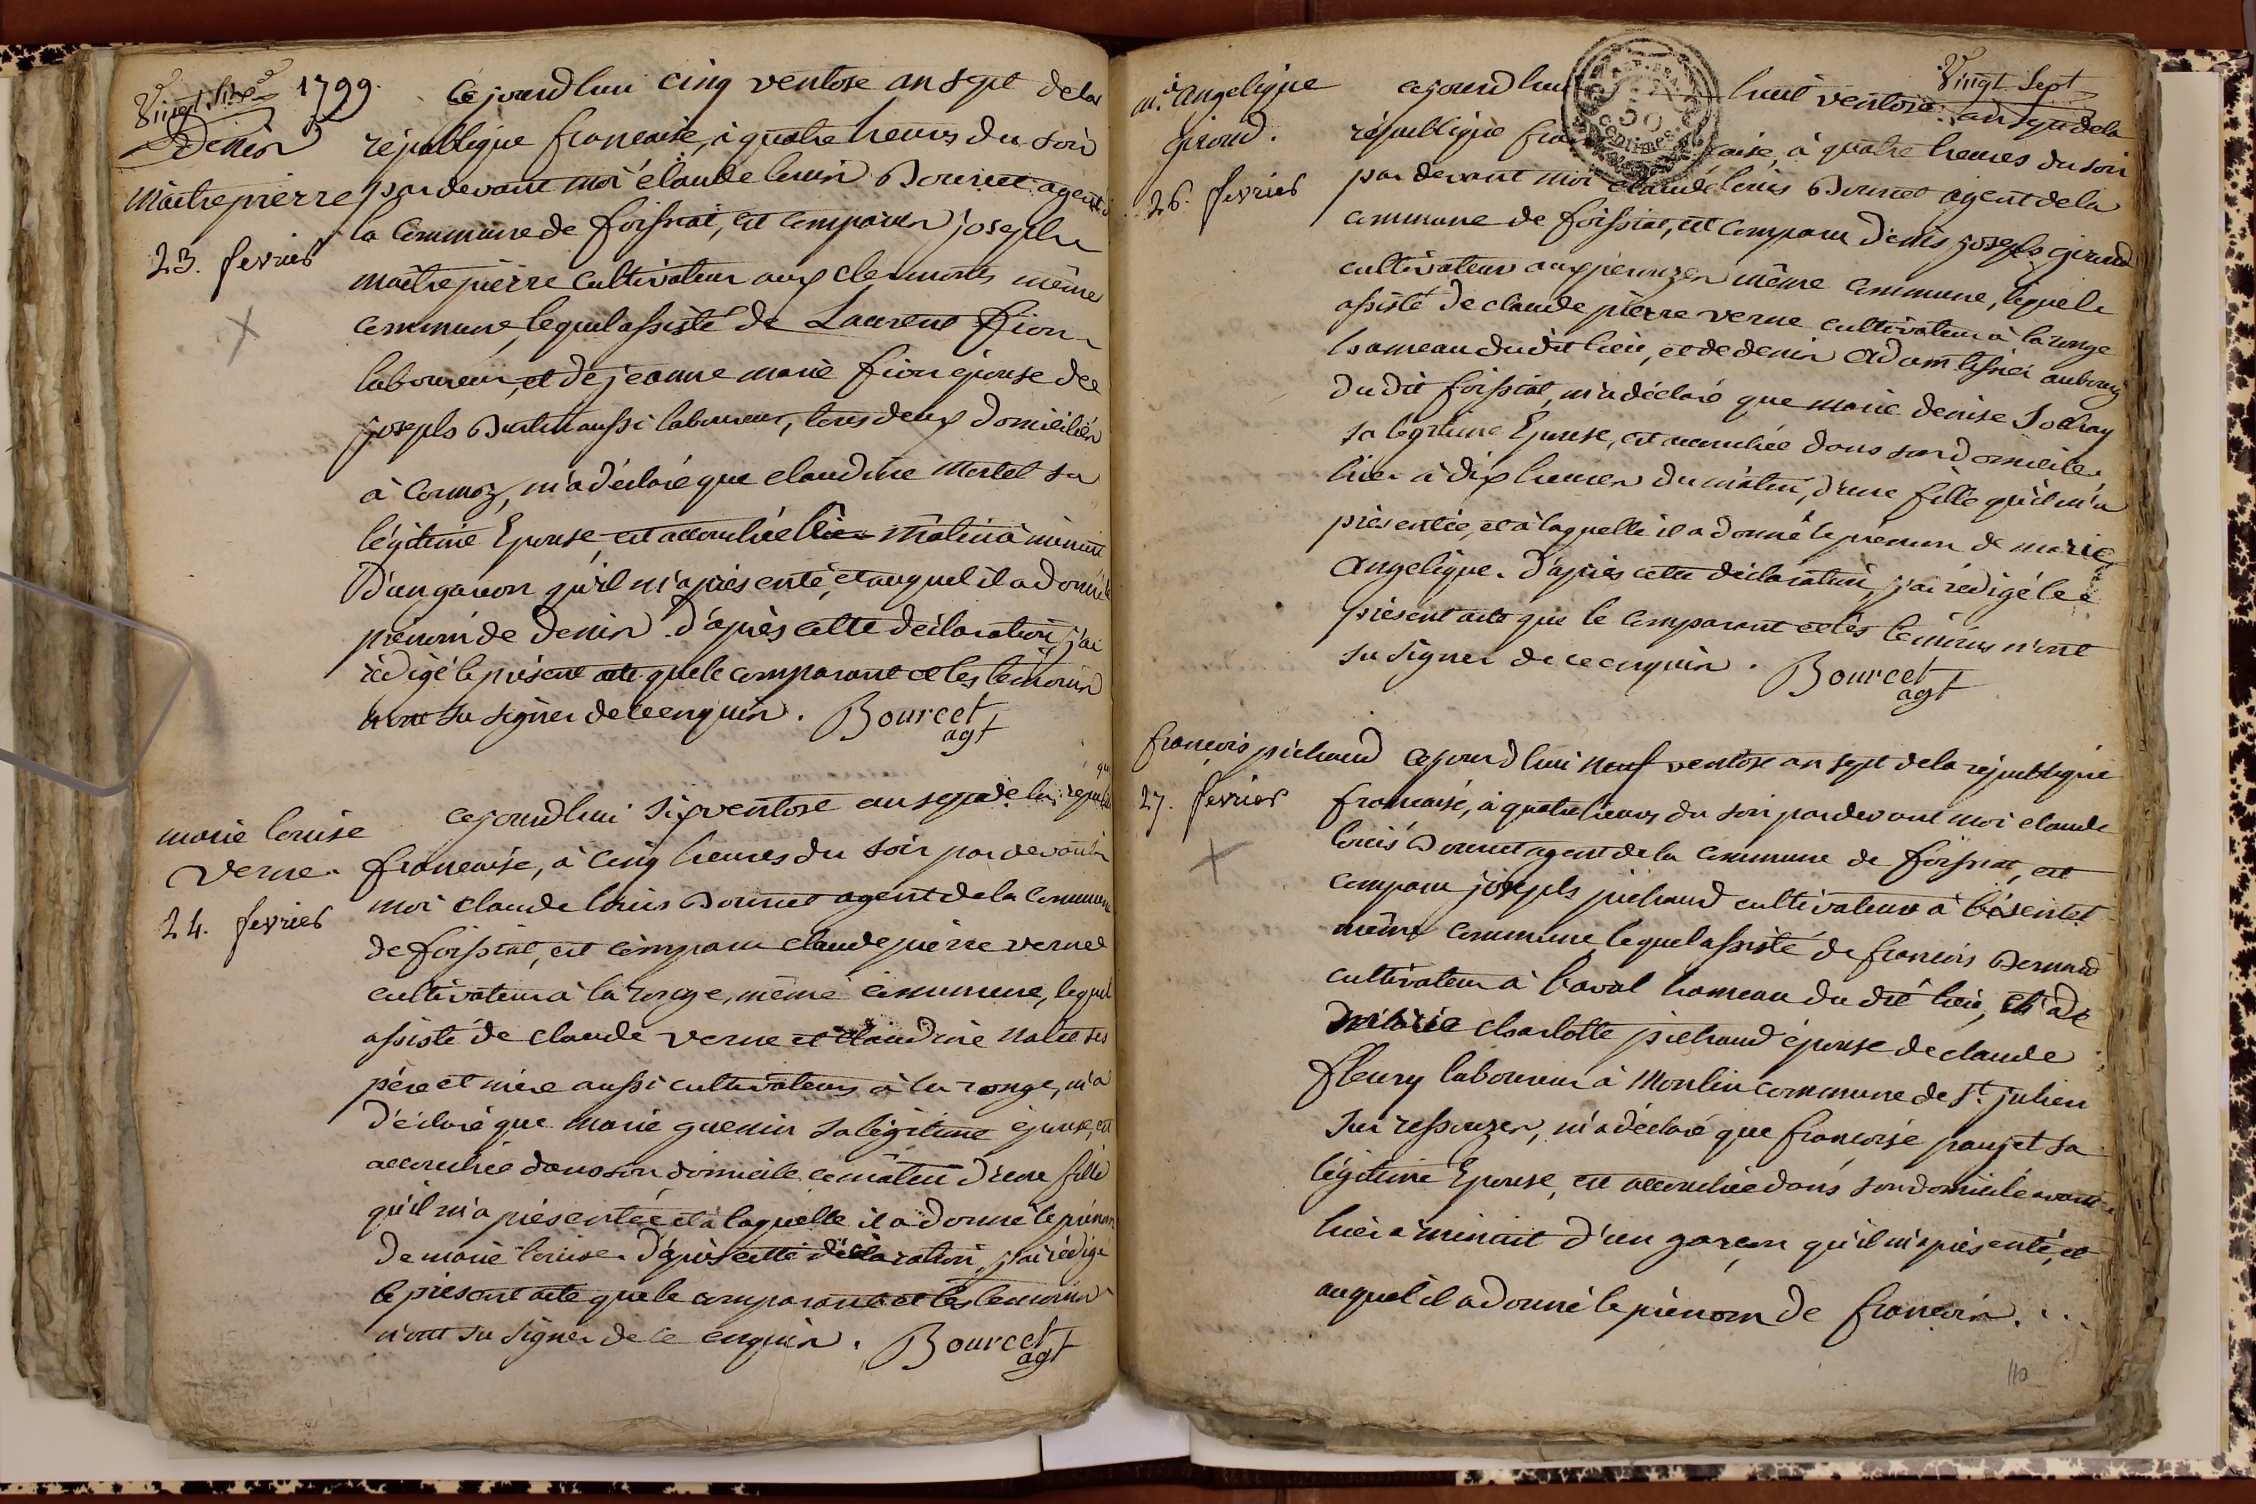 Vingt Six
1799.
Denis
Maitrepierre
23. fevrier
Cejourdhui cinq ventose an sept de la
république francaise, à quatre heures du soir
par devant moi claude louis Bourcet agent d
la commune de foissiat, est comparu joseph
maitrepierre cultivateur aux clermonts même
commune, lequel assisté de Laurent fion
laboureur, et de jeanne marie fion épouse de
joseph aussi laboureur, tous deux domiciliés
à Cormoz, m'a déclaré que claudine Mortel sa
légitime Epouse, est accouchée hier matin à minuit
D'un garcon qu'il m'a présenté, et auquel il a donné le
prénom de Denis. D'après cette déclaration, j'ai
rédigé le présent acte que le comparant et les témoins
n'ont su signer de ce enquis. Bourcet
agt
marie louise
Verne.
24. fevrier
cejourdhui six ventose an sept de la republi
que
francaise, à cinq heures du soir par devant
moi claude louis Bourcet agent de la commune
de foissiat, est comparu claude pierre verne
cultivateur à la ronge, même commune, lequel
assisté de claude verne et claudine ses
père et mère aussi cultivateurs à la ronge, m'a
déclaré que marie guenin sa légitime épouse, est
accouchée dans son domicile ce matin d'une fille
qu'il m'a présentée et à laquelle il a donné le prénom
de marie louise. D'après cette déclaration, j'ai rédigé
le présent acte que le comparant et les témoins
n'ont su signer de ce enquis. Bourcet
agt
Vingt Sept
m.ie angelique
girond.
26. fevrier
cejourdhui huit ventose an sept de la
république francaise, à quatre heures du soir
par devant moi claude louis Bourcet agent de la
commune de foissiat, est comparu Denis joseph girond
cultivateur aux même commune, lequel
assisté de claude pierre verne cultivateur à la ronge
hameau du dit lieu, et de denis adam tissier au bourg
du dit foissiat, m'a déclaré que marie denise
sa légitime Epouse, est accouchée dans son domicile
hier à dix heures du matin, d'une fille qu'il m'a
présentée, et à laquelle il a donné le prénom de marie
angelique. D'après cette déclaration, j'ai rédigé le
présent acte que le comparant et les témoins n'ont
su signer de ce enquis. Bourcet
agt
françois pichaud
27. fevrier
cejourdhui neuf ventose an sept de la république
francaise, à quatre heures du soir par devant moi claude
louis Bourcet agent de la commune de foissiat, est
comparu joseph pichaud cultivateur à
même commune, lequel assisté de francois Bernard
cultivateur à laval hameau du dit lieu, et de
Marie charlotte pichaud épouse de claude
fleury laboureur à Montlin commune de St. julien
sur ressouzes, m'a déclaré que françoise pauget sa
légitime Epouse, est accouchée dans son domicile avant
hier à minuit d'un garçon qu'il m'a présenté, et
auquel il a donné le prénom de francois. . . .
110